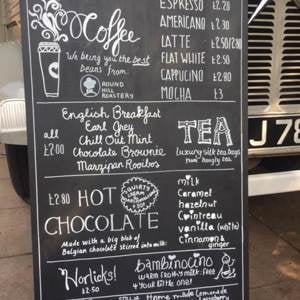 Coffee
We bring you the best
beans from:
ROUND
HILL
ROASTERY
ESPRESSO £2.20
AMERICANO £2.30
LATTE - £2.50/2.80
FLAT WHITE £2.50
CAPPUCINO £2.80
MOCHA £3
English Breakfast
Earl Grey
Chill Out Mint
Chocolate Brownie
Marzipan Rooibos
all
£2.00
TEA
luxury silk tea bags
from
£2.80 HOT
CHOCOLATE
Made with a big blob of
Belgian chocolate stirred into milk:
SQUIRTY
CREAM
milk
Caramel
hazelnut
Cointreau
vanilla (white)
Cinnamon &
ginger
Norlicks!
£2.50
bambinocino
warm frothy milk: free
4 your little one!
Home made Lemonade
J 78